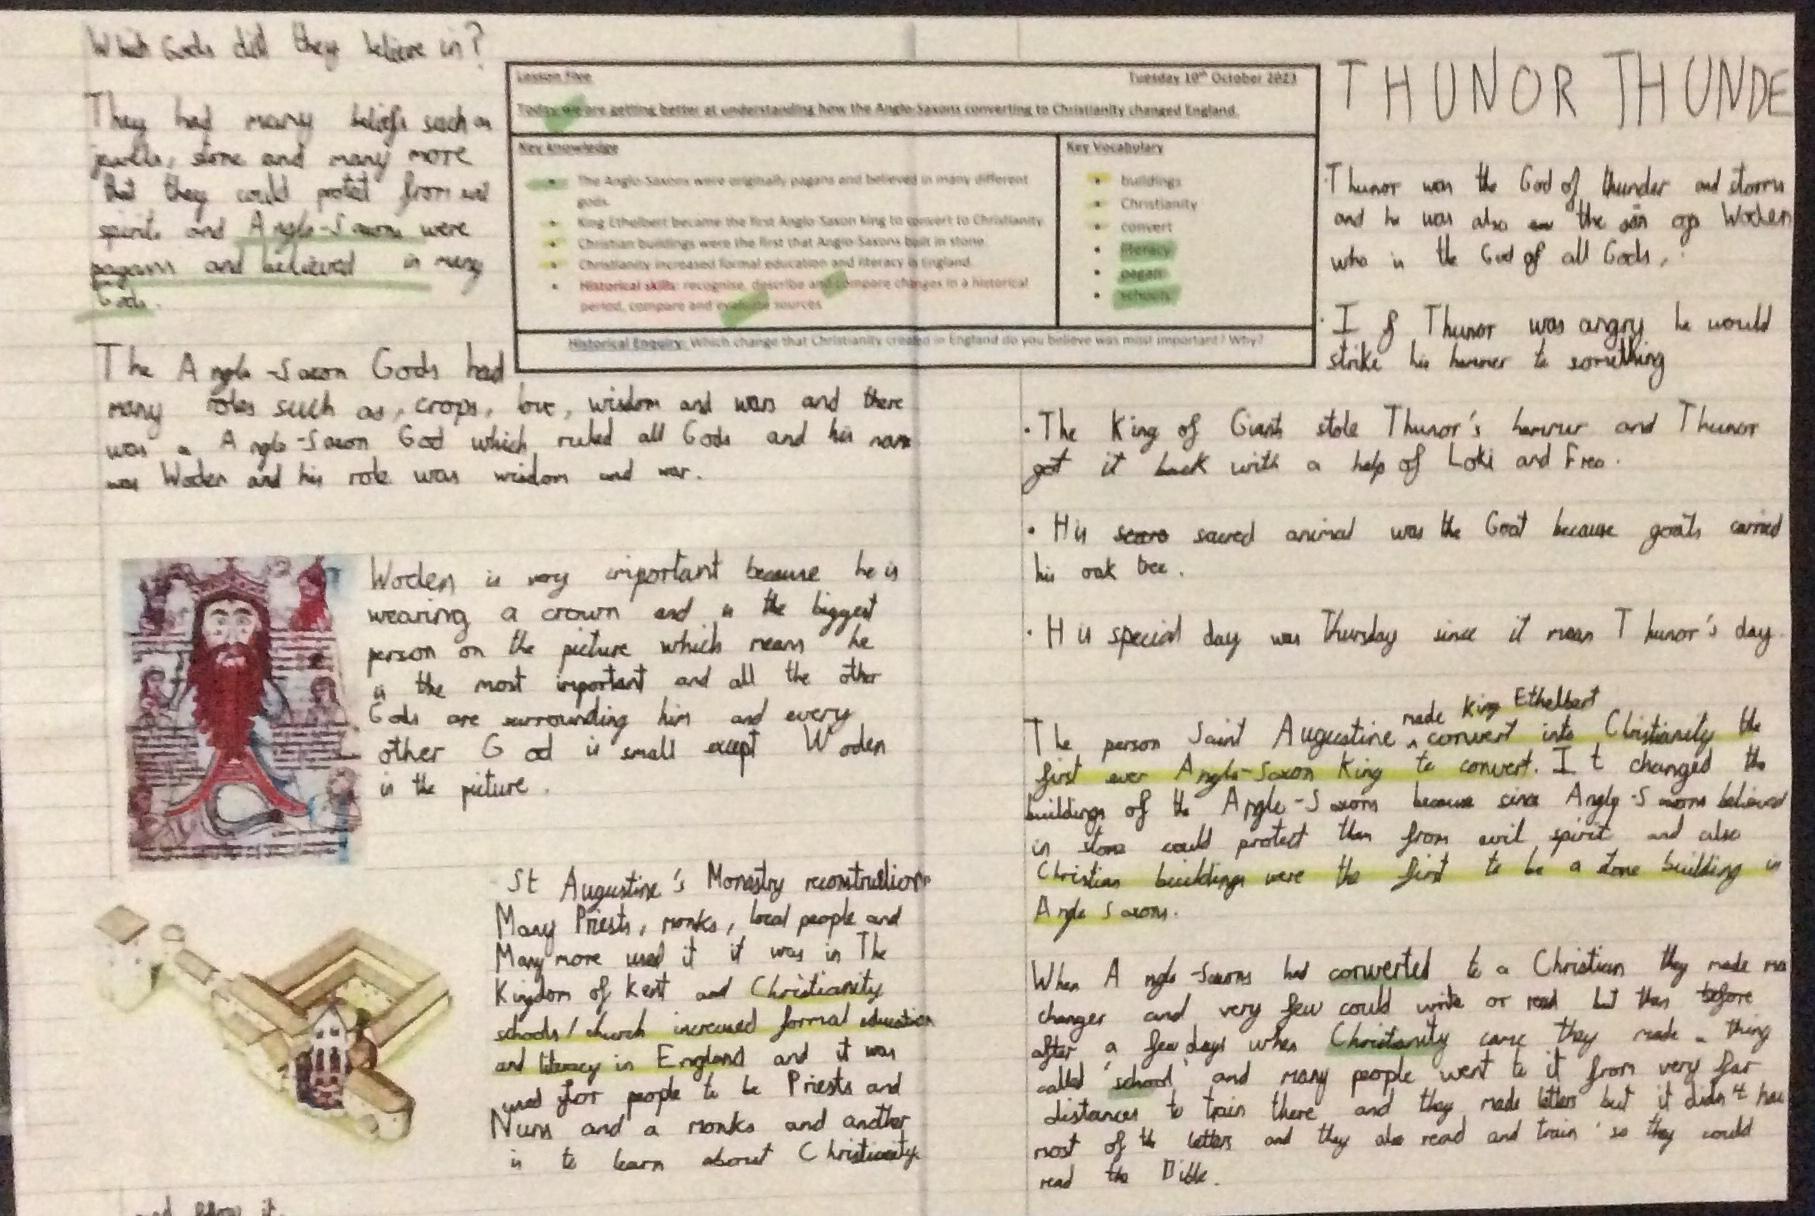 Which Gods did they believe in?
They had many beliefs such as
jewells, stone and many more
that they could protet from evil
spirits and Anglo-Saxons were
pagans and believed in many
Gods.
Lesson Five
Tuesday 10th October 2023
Today we are getting better at understanding how the Anglo-Saxons converting to Christianity changed England.
Key Knowledge
• The Anglo-Saxons were originally pagans and believed in many different
gods.
• King Ethelbert became the first Anglo-Saxon king to convert to Christianity.
• Christian buildings were the first that Anglo-Saxons built in stone.
• Christianity increased formal education and literacy in England.
• Historical skills: recognise, describe and compare changes in a historical
period, compare and evaluate sources
Key Vocabulary
• buildings
• Christianity
• convert
• literacy
• pagan
• schools
Historical Enquiry: Which change that Christianity created in England do you believe was most important? Why?
The Anglo-Saxon Gods had
many roles such as, crops, love, wisdom and wars and there
was a Anglo-Saxon God which ruled all Gods and his name
was Woden and his role was wisdom and war.
Woden is very important because he is
wearing a crown and is the biggest
person on the picture which means he
is the most important and all the other
Gods are surrounding him and every
other God is small except Woden
in the picture.
St Augustine's Monastry reconstruction
Many Priests, monks, local people and
Many more used it it was in The
Kingdom of Kent and Christianity
schools/church increased formal education
and literacy in England and it was
used for people to be Priests and
Nuns and a monks and another
is to learn about Christianity
and it.
THUNOR THUNDE
Thunor was the God of thunder and storms
and he was also the son of Woden
who is the God of all Gods.
• If Thunor was angry he would
strike his hammer to something
• The King of Giants stole Thunor's hammer and Thunor
got it back with a help of Loki and Freo.
• His sacred animal was the Goat because goats carried
his oak tree.
• His special day was Thursday since it mean Thunor's day.
The person Saint Augustine made King Ethelbert convert into Christianity the
first ever Anglo-Saxon King to convert. It changed the
buildings of the Anglo-Saxons because since Anglo-Saxons believed
in stone could protect them from evil spirit and also
Christian buildings were the first to be a stone building in
Anglo Saxons.
When Anglo-Saxons had converted to a Christian they made
changer and very few could write or read but then before
after a few days when Christianity came they made a thing
called 'school' and many people went to it from very far
distances to train there and they made letters but it didn't have
most of the letters and they also read and train so they could
read the Bible.